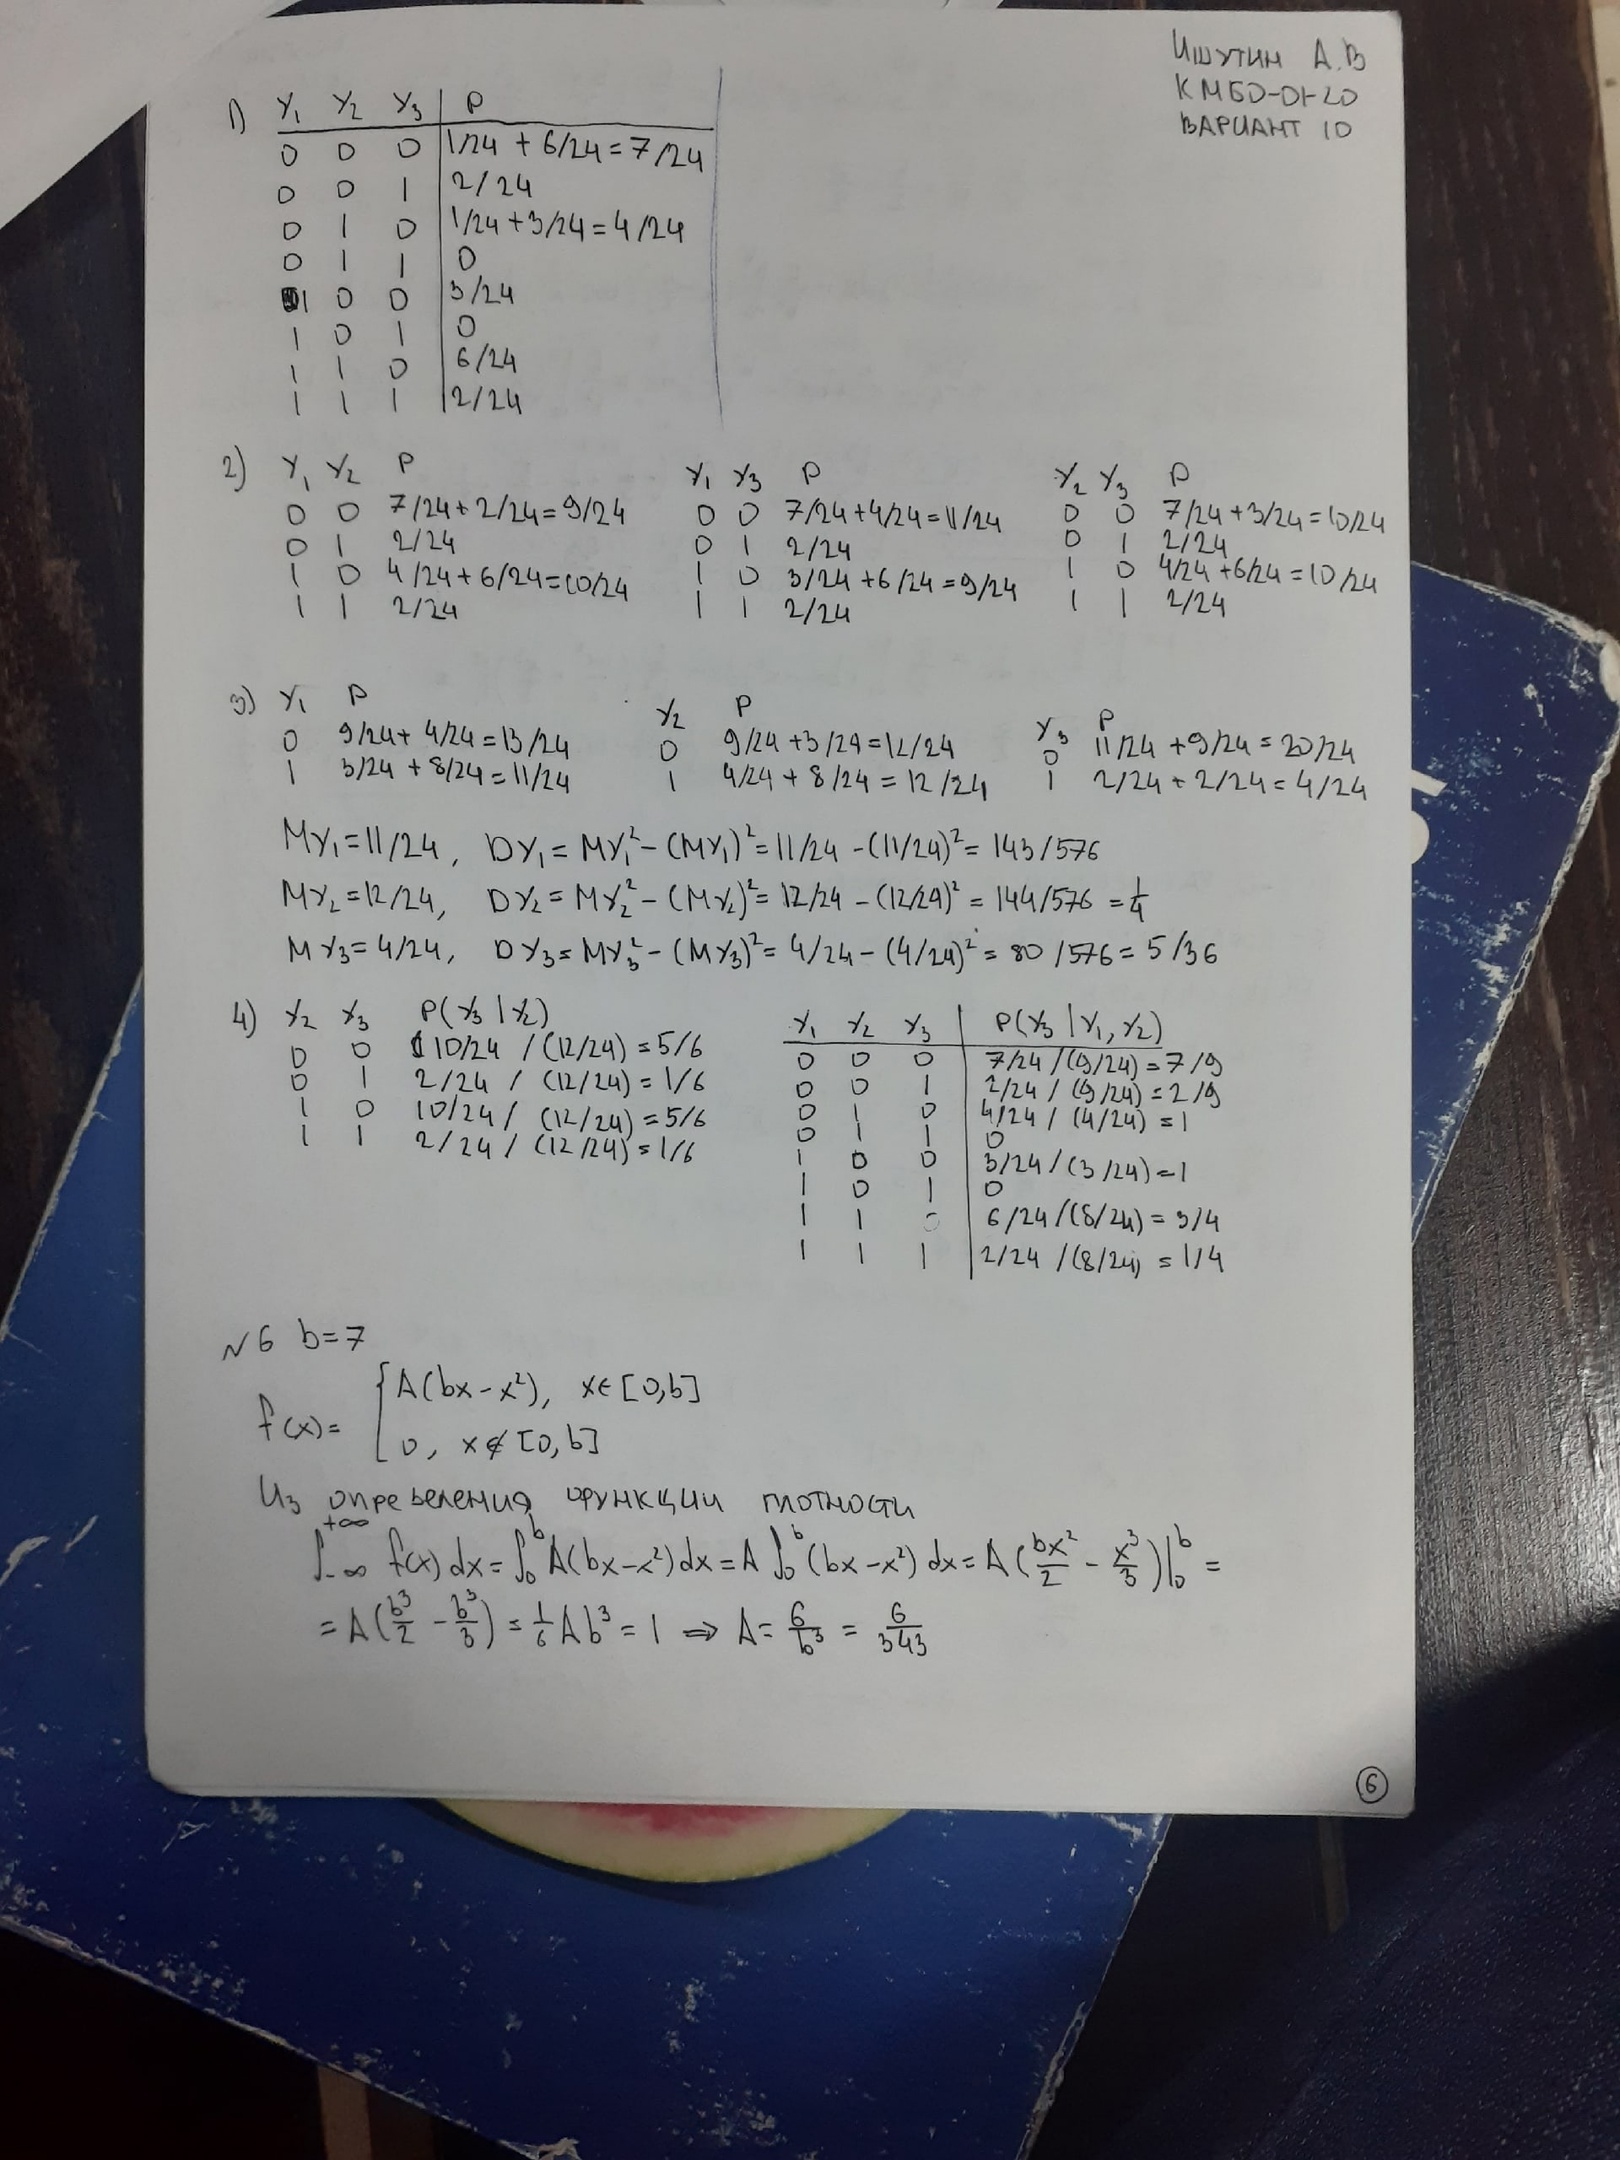 Ишутин А.В
КМБО-01-20
ВАРИАНТ 10
1) Y₁ Y₂ Y₃ P
0 0 0 1/24 + 6/24 = 7/24
0 0 1 2/24
0 1 0 1/24 + 3/24 = 4/24
0 1 1 0
1 0 0 3/24
1 0 1 0
1 1 0 6/24
1 1 1 2/24
2) Y₁ Y₂ P
0 0 7/24 + 2/24 = 9/24
0 1 2/24
1 0 4/24 + 6/24 = 10/24
1 1 2/24
Y₁ Y₃ P
0 0 7/24 + 4/24 = 11/24
0 1 2/24
1 0 3/24 + 6/24 = 9/24
1 1 2/24
Y₂ Y₃ P
0 0 7/24 + 3/24 = 10/24
0 1 2/24
1 0 4/24 + 6/24 = 10/24
1 1 2/24
3) Y₁ P
0 9/24 + 4/24 = 13/24
1 3/24 + 8/24 = 11/24
Y₂ P
0 9/24 + 3/24 = 12/24
1 4/24 + 8/24 = 12/24
Y₃ P
0 11/24 + 9/24 = 20/24
1 2/24 + 2/24 = 4/24
MY₁ = 11/24, DY₁ = MY₁² - (MY₁)² = 11/24 - (11/24)² = 143/576
MY₂ = 12/24, DY₂ = MY₂² - (MY₂)² = 12/24 - (12/24)² = 144/576 = 1/4
MY₃ = 4/24, DY₃ = MY₃² - (MY₃)² = 4/24 - (4/24)² = 80/576 = 5/36
4) Y₂ Y₃ P(Y₃ | Y₂)
0 0 10/24 / (12/24) = 5/6
0 1 2/24 / (12/24) = 1/6
1 0 10/24 / (12/24) = 5/6
1 1 2/24 / (12/24) = 1/6
Y₁ Y₂ Y₃ P(Y₃ | Y₁, Y₂)
0 0 0 7/24 / (9/24) = 7/9
0 0 1 2/24 / (9/24) = 2/9
0 1 0 4/24 / (4/24) = 1
0 1 1 0
1 0 0 3/24 / (3/24) = 1
1 0 1 0
1 1 0 6/24 / (8/24) = 3/4
1 1 1 2/24 / (8/24) = 1/4
№6 b=7
f(x) = { A(bx - x²), x∈[0,b]
0, x∉[0,b]
Из определения функции плотности
∫₋∞^+∞ f(x) dx = ∫₀^b A(bx - x²) dx = A ∫₀^b (bx - x²) dx = A (bx²/2 - x³/3)|₀^b =
= A(b³/2 - b³/3) = 1/6 Ab³ = 1 ⇒ A = 6/b³ = 6/343
6